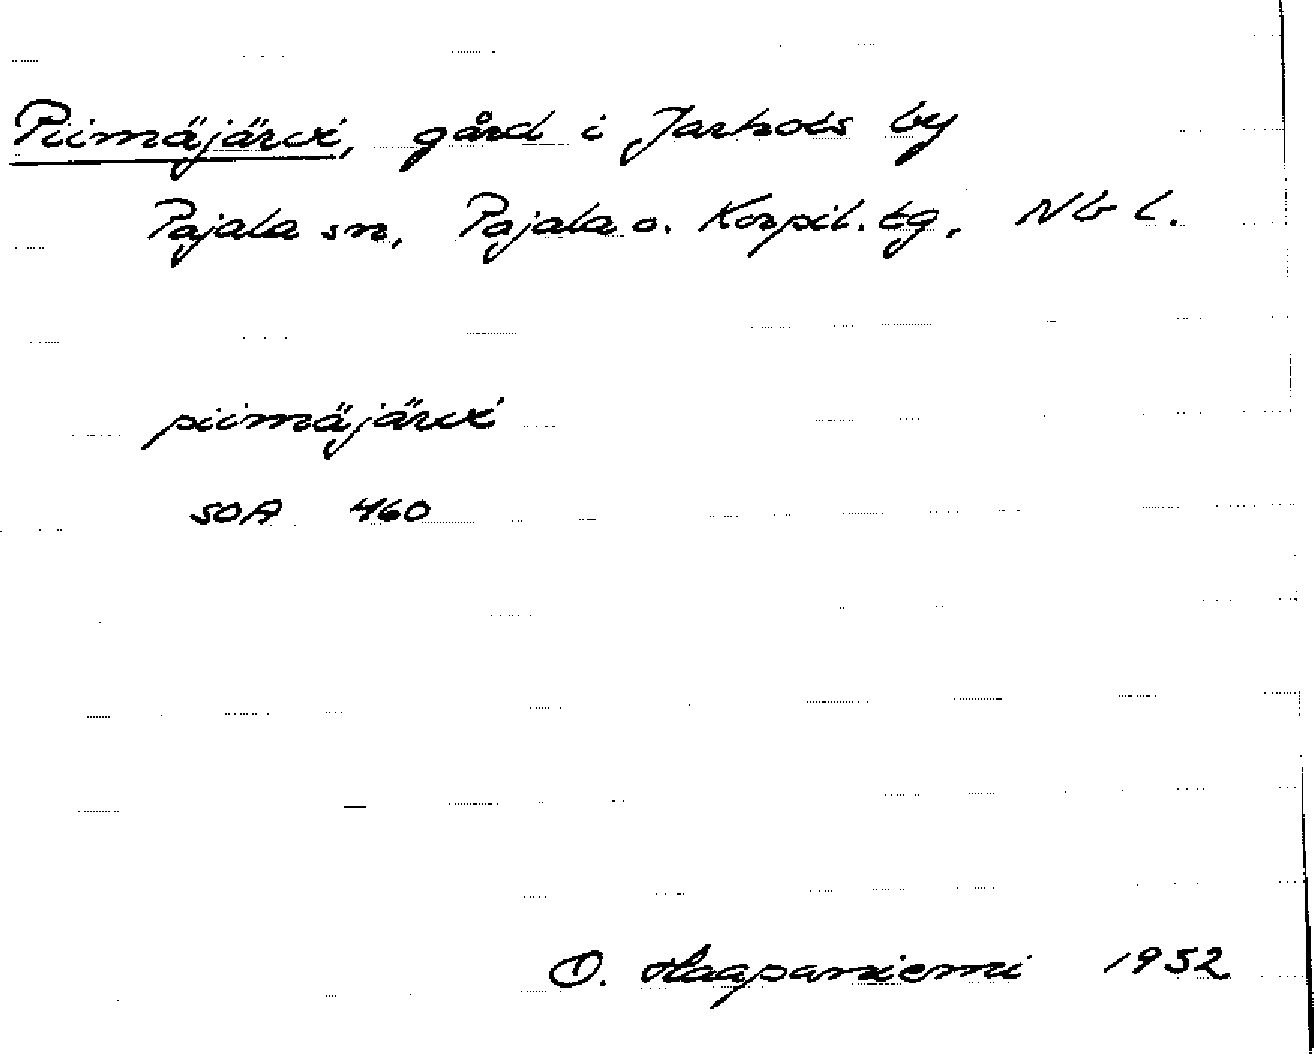 Piimäjärvi, gård i Jarhois by
Pajala sn, Pajala o. Korpil. tg, Nb l.
piimäjärvi
SOA 460
O. Haapaniemi 1952